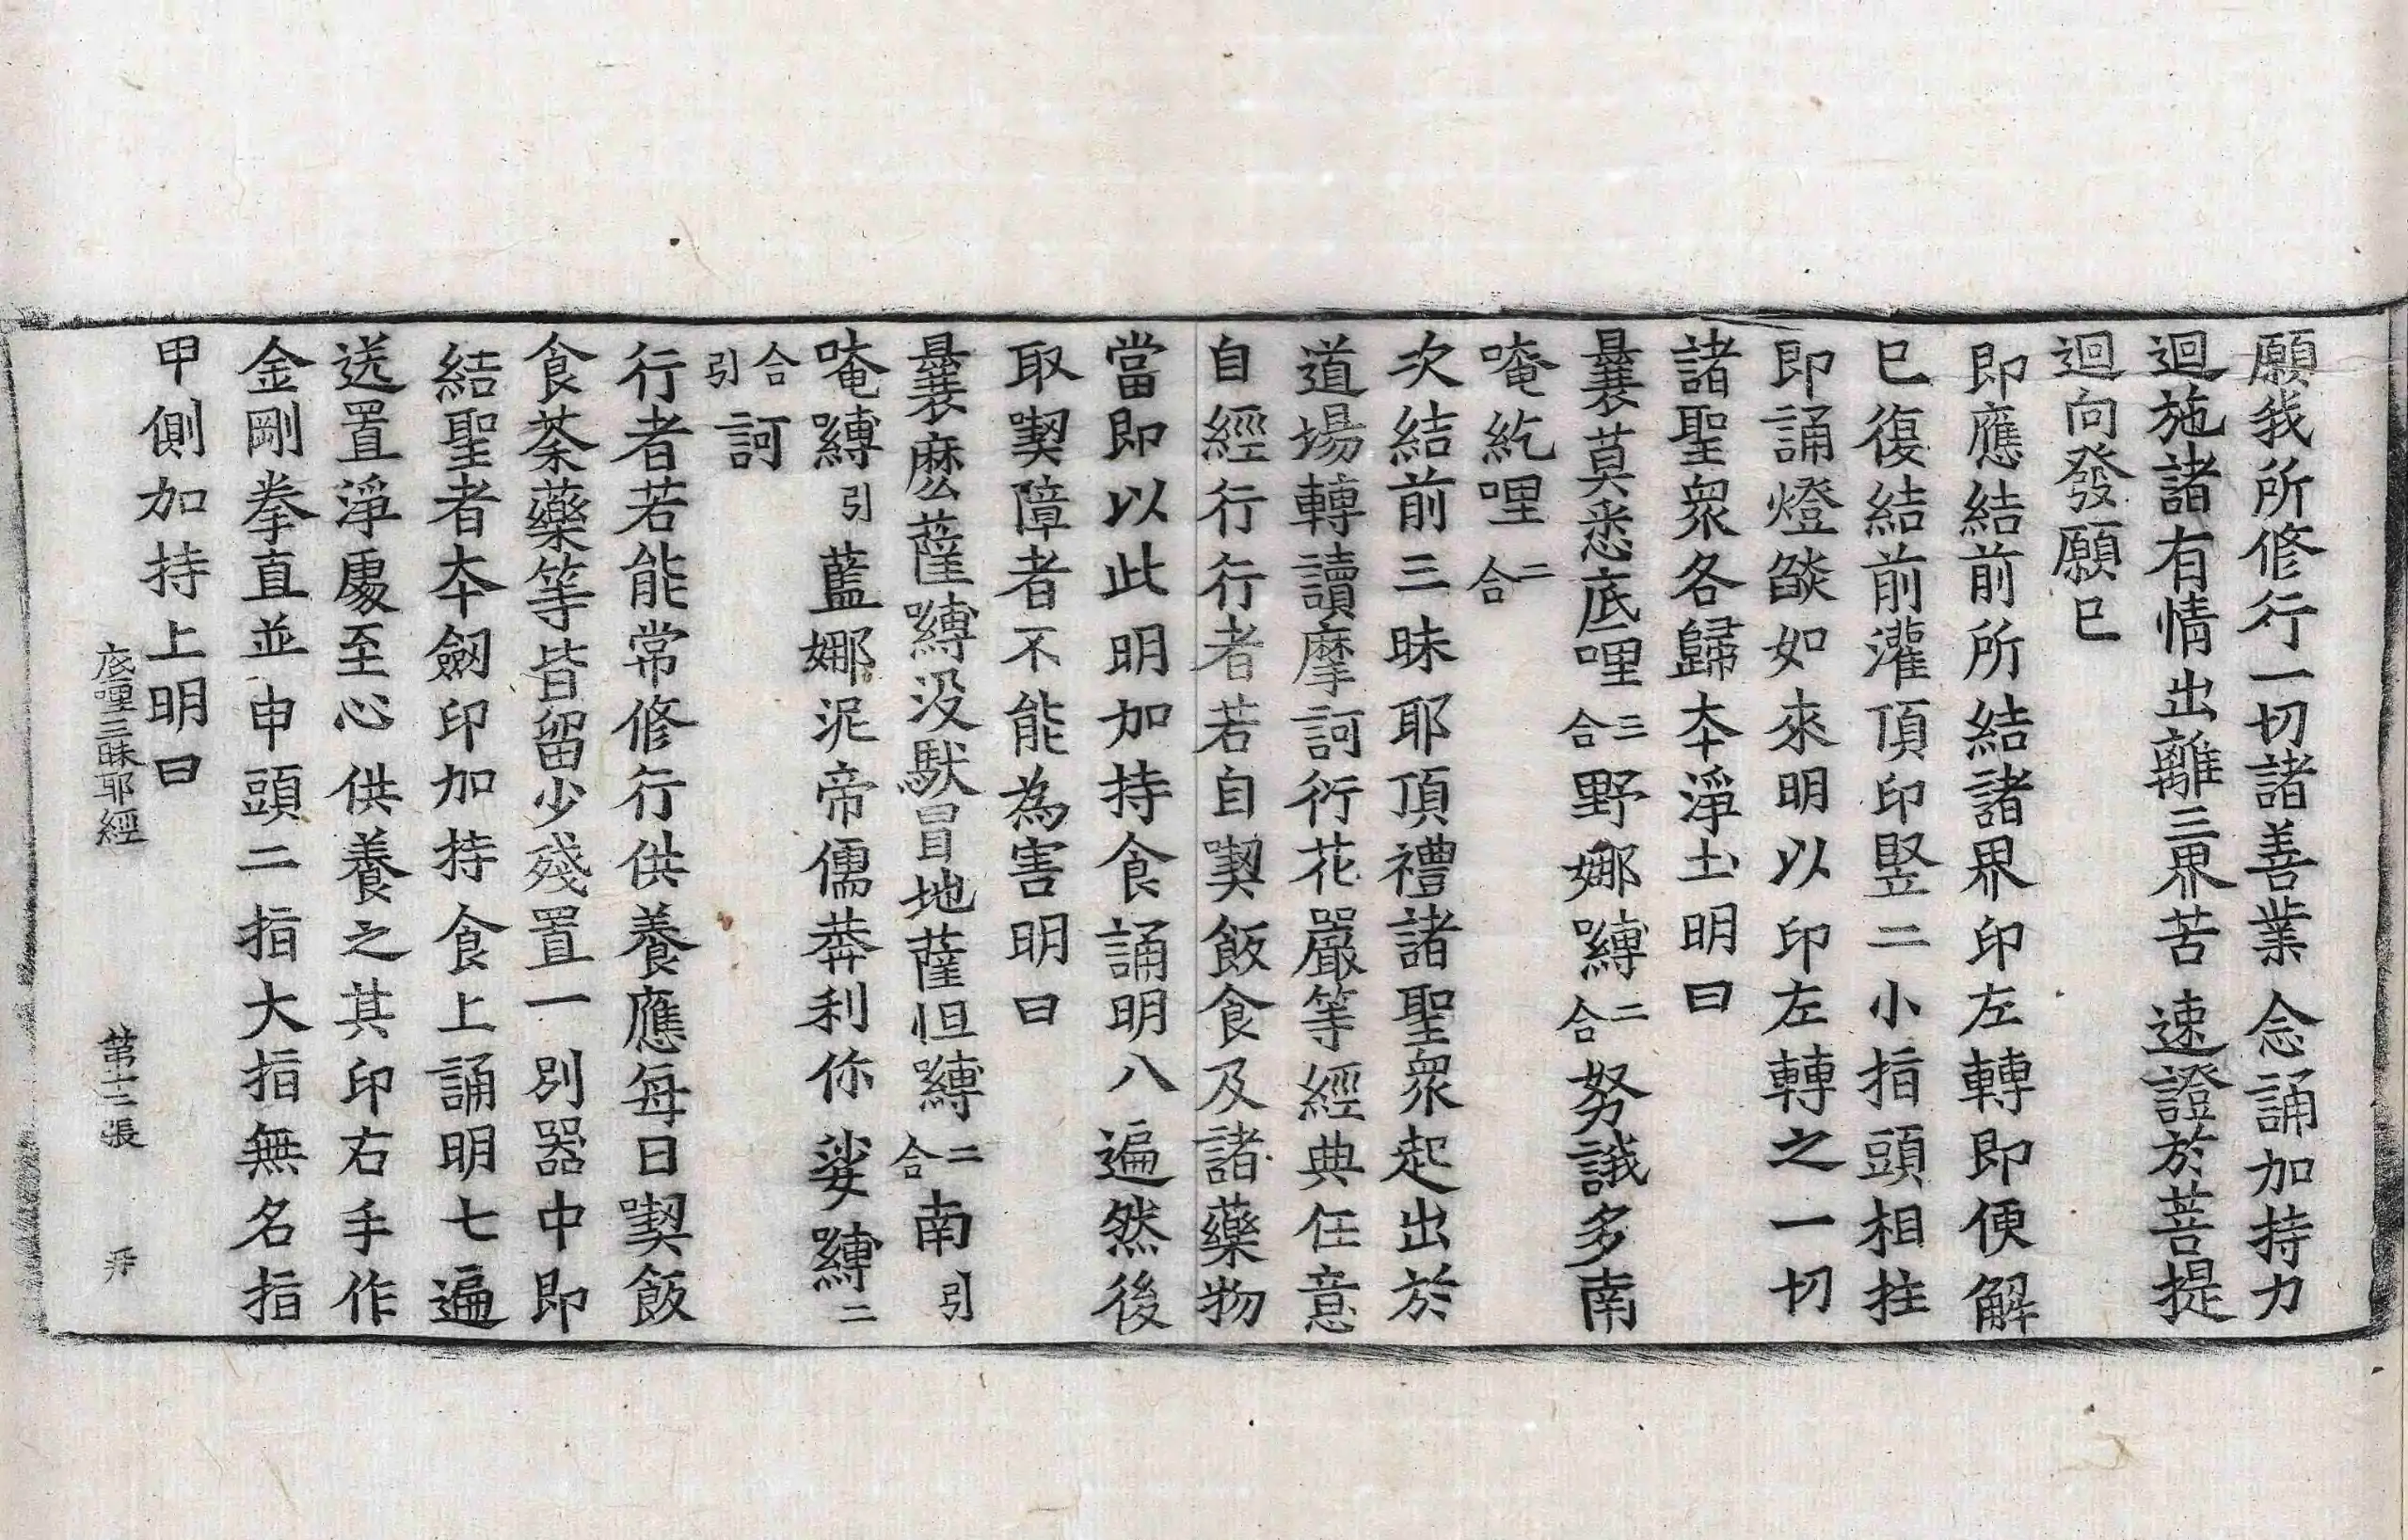 願我所修行一切諸善業 念誦加持力
迴施諸有情出離三界苦 速證於菩提
迴向發願巳
即應結前所結諸界印左轉即便解
巳復結前灌頂印竪二小指頭相拄
即誦燈焰如來明以印左轉之一切
諸聖衆各歸夲淨土明曰
曩莫悉底哩三合野娜嚩二合努誐多南
唵紇哩二合
次結前三昧耶頂禮諸聖衆起出於
道場轉讀摩訶衍花嚴等經典任意
自經行行者若自喫飯食及諸藥物
當即以此明加持食誦明八遍然後
取喫障者不能為害明曰
曩麽薩嚩没馱冒地薩怛嚩二合南引
唵嚩引藍娜泥帝儒莽利你娑嚩二
合引訶
行者若能常修行供養應每日喫飯
食荼藥等皆留少殘置一別器中即
結聖者夲劒印加持食上誦明七遍
送置淨處至心供養之其印右手作
金剛拳直並申頭二指大指無名指
甲側加持上明曰
底哩三昧耶經 第十二張